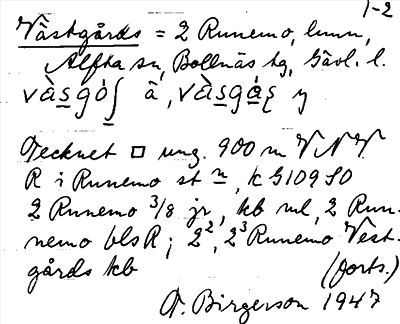 1-2
Västgårds = 2 Runemo, hmn,
Alfta sn, Bollnäs tg, Gävl. l.
Tecknet □ ung. 900 m VNV.
R i Runemo st n, k G109 SO
2 Runemo 3/8 jr, kb ml, 2 Run-
nemo bls R; 2², 2³ Runemo Vest-
gårds kb (forts.)
A. Birgerson 1947